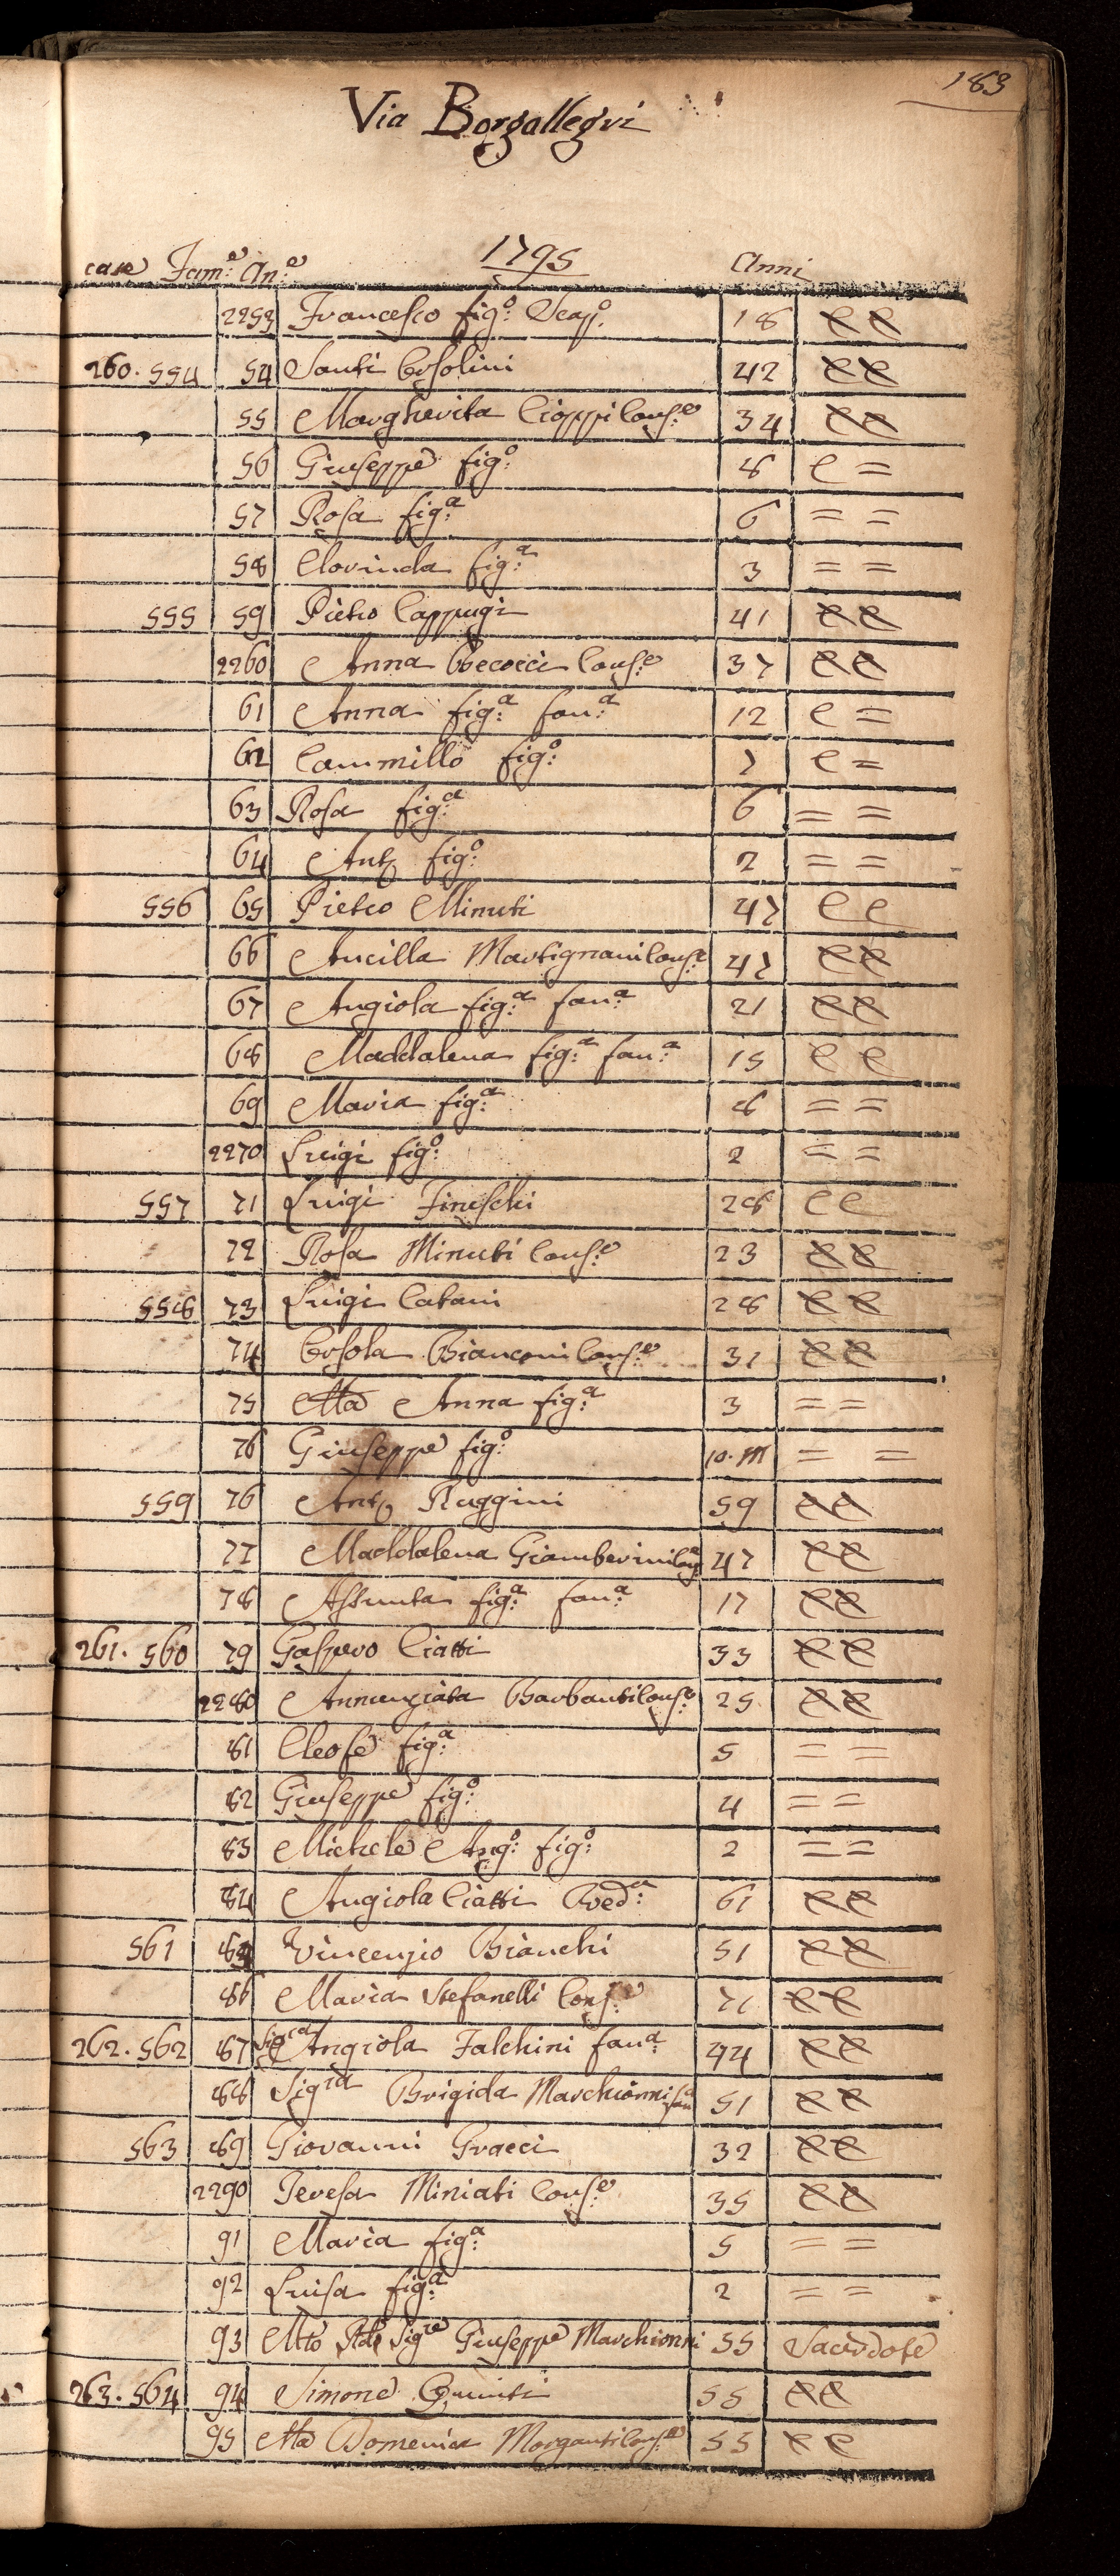 183
Via Borgallegri
1795
case Fam:e An:e Anni
2253 Francesco fig:o Scap:o 18 e e
260. 554 54 Santi Ersolini 42 e e
55 Margherita Cioppi Cons:e 34 e e
56 Giuseppe fig:o 8 e =
57 Rosa fig:a 6 = =
58 Clorinda fig:a 3 = =
555 59 Pietro Cappugi 41 e e
2260 Anna Becocci Cons:e 37 e e
61 Anna fig:a fan:a 12 e =
62 Cammillo fig:o 7 e =
63 Rosa fig:a 6 = =
64 Anto fig:o 2 = =
556 65 Pietro Minuti 47 e e
66 Ancilla Martignani Cons:e 47 e e
67 Angiola fig:a fan:a 21 e e
68 Maddalena fig:a fan:a 15 e e
69 Maria fig:a 8 = =
2270 Luigi fig:o 2 = =
557 71 Luigi Fineschi 28 e e
72 Rosa Minuti Cons:e 23 e e
558 73 Luigi Catani 28 e e
74 Orsola Bianconi Cons:e 31 e e
75 Ma Anna fig:a 3 = =
76 Giuseppe fig:o 10. M = =
559 76 Anto Ruggini 59 e e
77 Maddalena Giamberini Cons 47 e e
78 Assunta fig:a fan:a 17 e e
261. 560 79 Gaspero Ciatti 33 e e
2280 Annunziata Barbanti Cons:e 25 e e
81 Cleofe fig:a 5 = =
82 Giuseppe fig:o 4 = =
83 Michele Ang:o fig:o 2 = =
84 Angiola Ciatti Ved:a 61 e e
561 85 Vincenzio Bianchi 51 e e
86 Maria Stefanelli Cons:e 71 e e
262. 562 87 Sigra Angiola Falchini fan:a 44 e e
88 Sigra Brigida Marchionni fan:a 51 e e
563 89 Giovanni Gracci 32 e e
2290 Teresa Miniati Cons:e 35 e e
91 Maria fig:a 5 = =
92 Luisa fig:a 2 = =
93 Mto Rdo Sigre Giuseppe Marchionni 55 Sacerdote
263. 564 94 Simone 55 e e
95 Ma Domenica Morganti Cons:e 55 e e